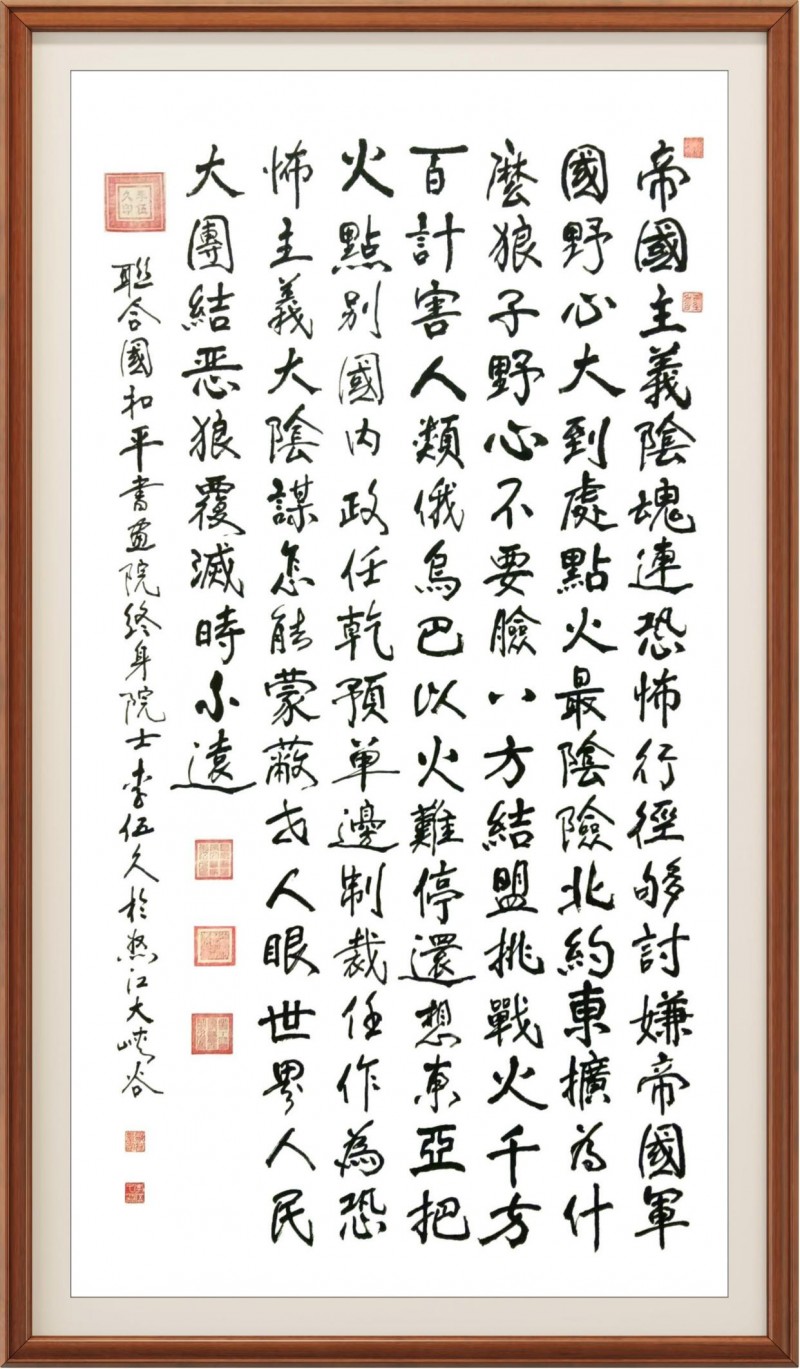 帝國主義陰魂連恐怖行徑够討嫌帝國軍
國野心大到處點火最陰險北約東擴為什
麽狼子野心不要臉八方結盟挑戰火千方
百計害人類俄烏巴以火難停還想東亞把
火點别國内政任乾預單邊制裁任作為恐
怖主義大陰謀怎能蒙蔽衣人眼世界人民
大團結恶狼覆滅時不遠
聯合國和平書畫院終身院士李伍久於怒江大峽谷
李伍久印